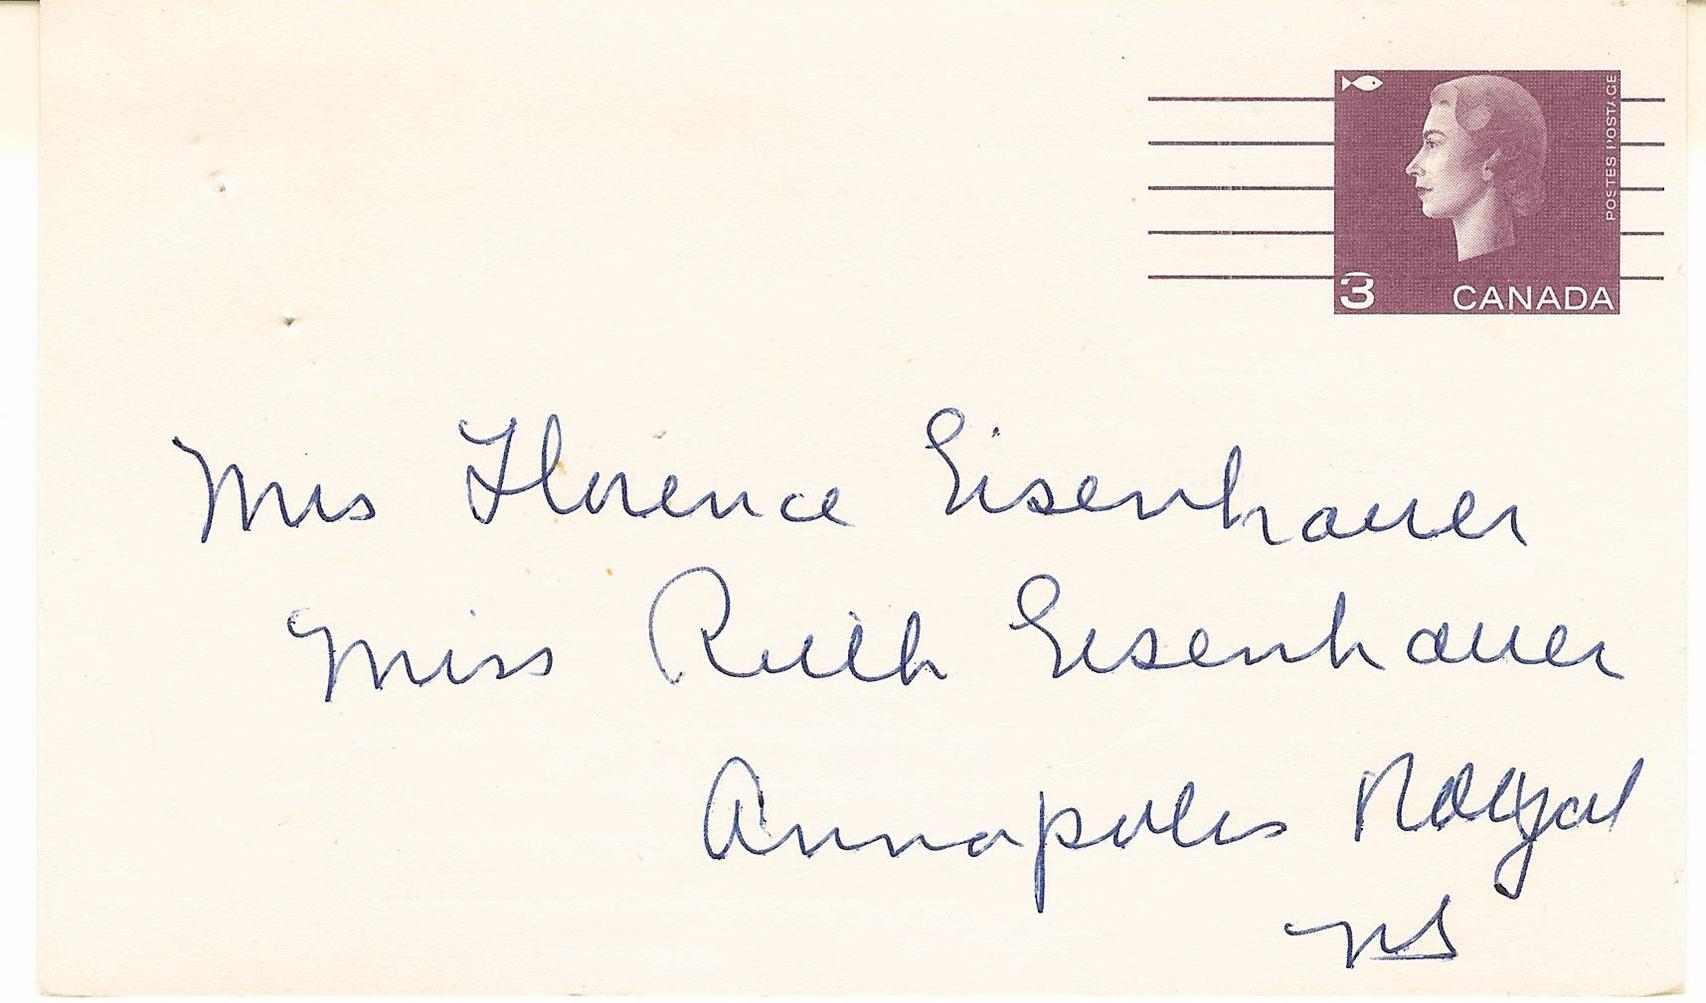 POSTES POSTAGE
3 CANADA
Mrs Florence Eisenhauer
Miss Ruth Eisenhauer
Annapolis Royal
NS